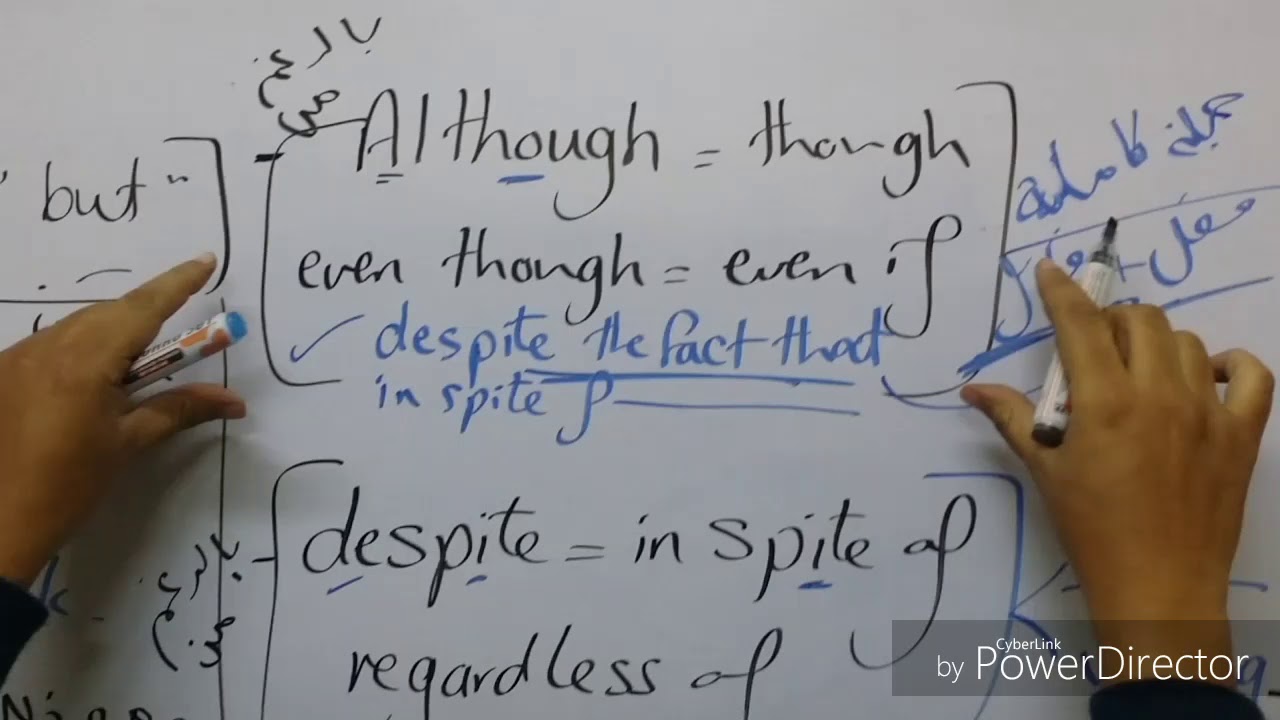 بالرغم
من
Although = though
"but"
جملة كاملة
even though = even if
فعل + فاعل
✓ despite the fact that
in spite of
despite = in spite of
بالرغم
من
regardless of
CyberLink
by PowerDirector